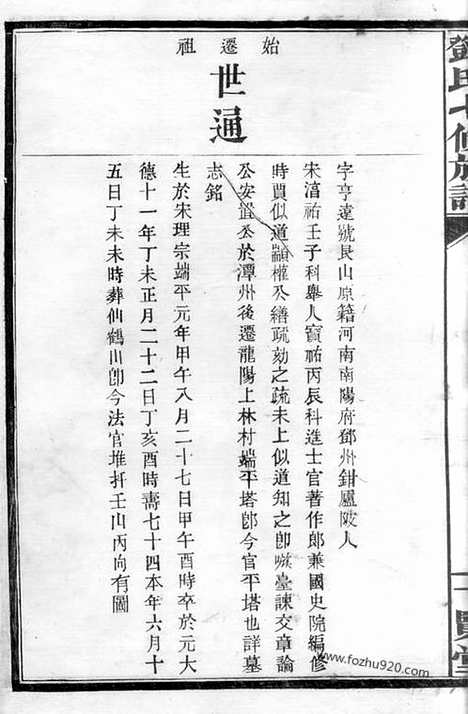 鄧氏七修族譜
始遷祖
世通
字亨達號艮山原籍河南南陽府鄧州鉗廬陂人
宋淳祐壬子科舉人寶祐丙辰科進士官著作郎兼國史院編修
時賈似道顓權公繕疏劾之疏未上似道知之卽嗾臺諫交章論
公安置公於潭州後遷龍陽上林村端平塔卽今官平塔也詳墓
志銘
生於宋理宗端平元年甲午八月二十七日甲午酉時卒於元大
德十一年丁未正月二十二日丁亥酉時壽七十四本年六月十
五日丁未未時葬仙鶴山卽今法官堆扦壬山丙向有圖
賢堂
www.fozhu920.com